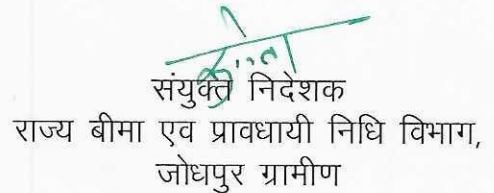 संयुक्त निदेशक
राज्य बीमा एव प्रावधायी निधि विभाग,
जोधपुर ग्रामीण